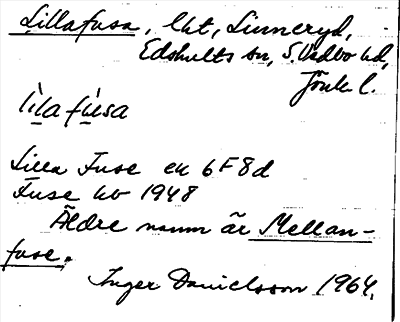 Lillafusa, lht, Linneryd,
Edshults sn, S. Vedbo hd,
Jönk l.
lìla fùsa
Lilla Fuse ek 6F8d
Fuse hv 1948
Äldre namn är Mellan-
fuse.
Inger Danielsson 1964.